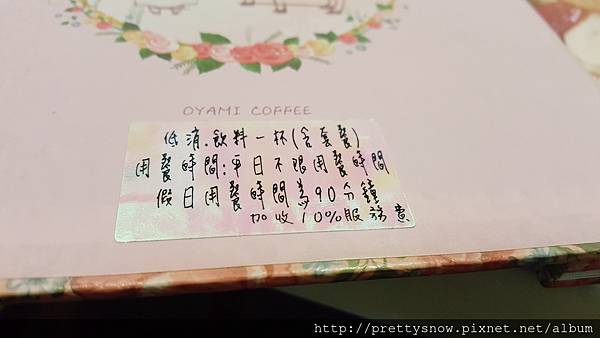 OYAMI COFFEE
低消.飲料一杯(含套餐)
用餐時間:平日不限用餐時間
假日用餐時間為90分鐘
加收10%服務費
http://prettysnow.pixnet.net/album